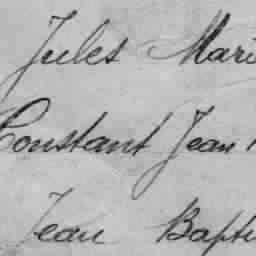 Jules Mari
Constant Jean
Jean Bapti